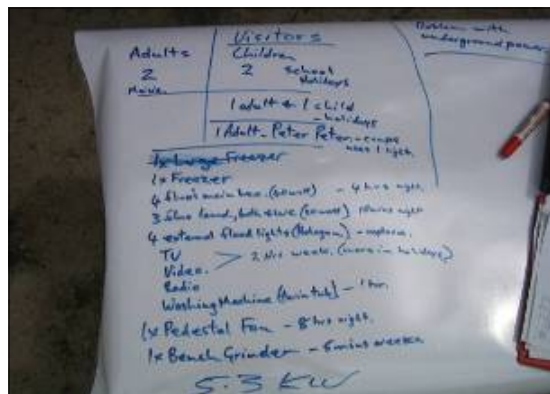 Visitors
Problem with
underground power
Adults
Children
2
2 School
Holidays
1 adult & 1 child
- holidays
1 Adult - Peter Peter - comes
uses 1 light.
1x Large Freezer
1x Freezer
4 fluro's main hse. - 4 hrs night.
3 fluro
4 external flood lights (Halogen)
TV
Video. 2 hrs week. (more in holidays)
Radio
Washing Machine (twin tub) - 1 hr.
1x Pedestal Fan - 8 hrs night.
1x Bench Grinder - 5 mins week
5.3 KW